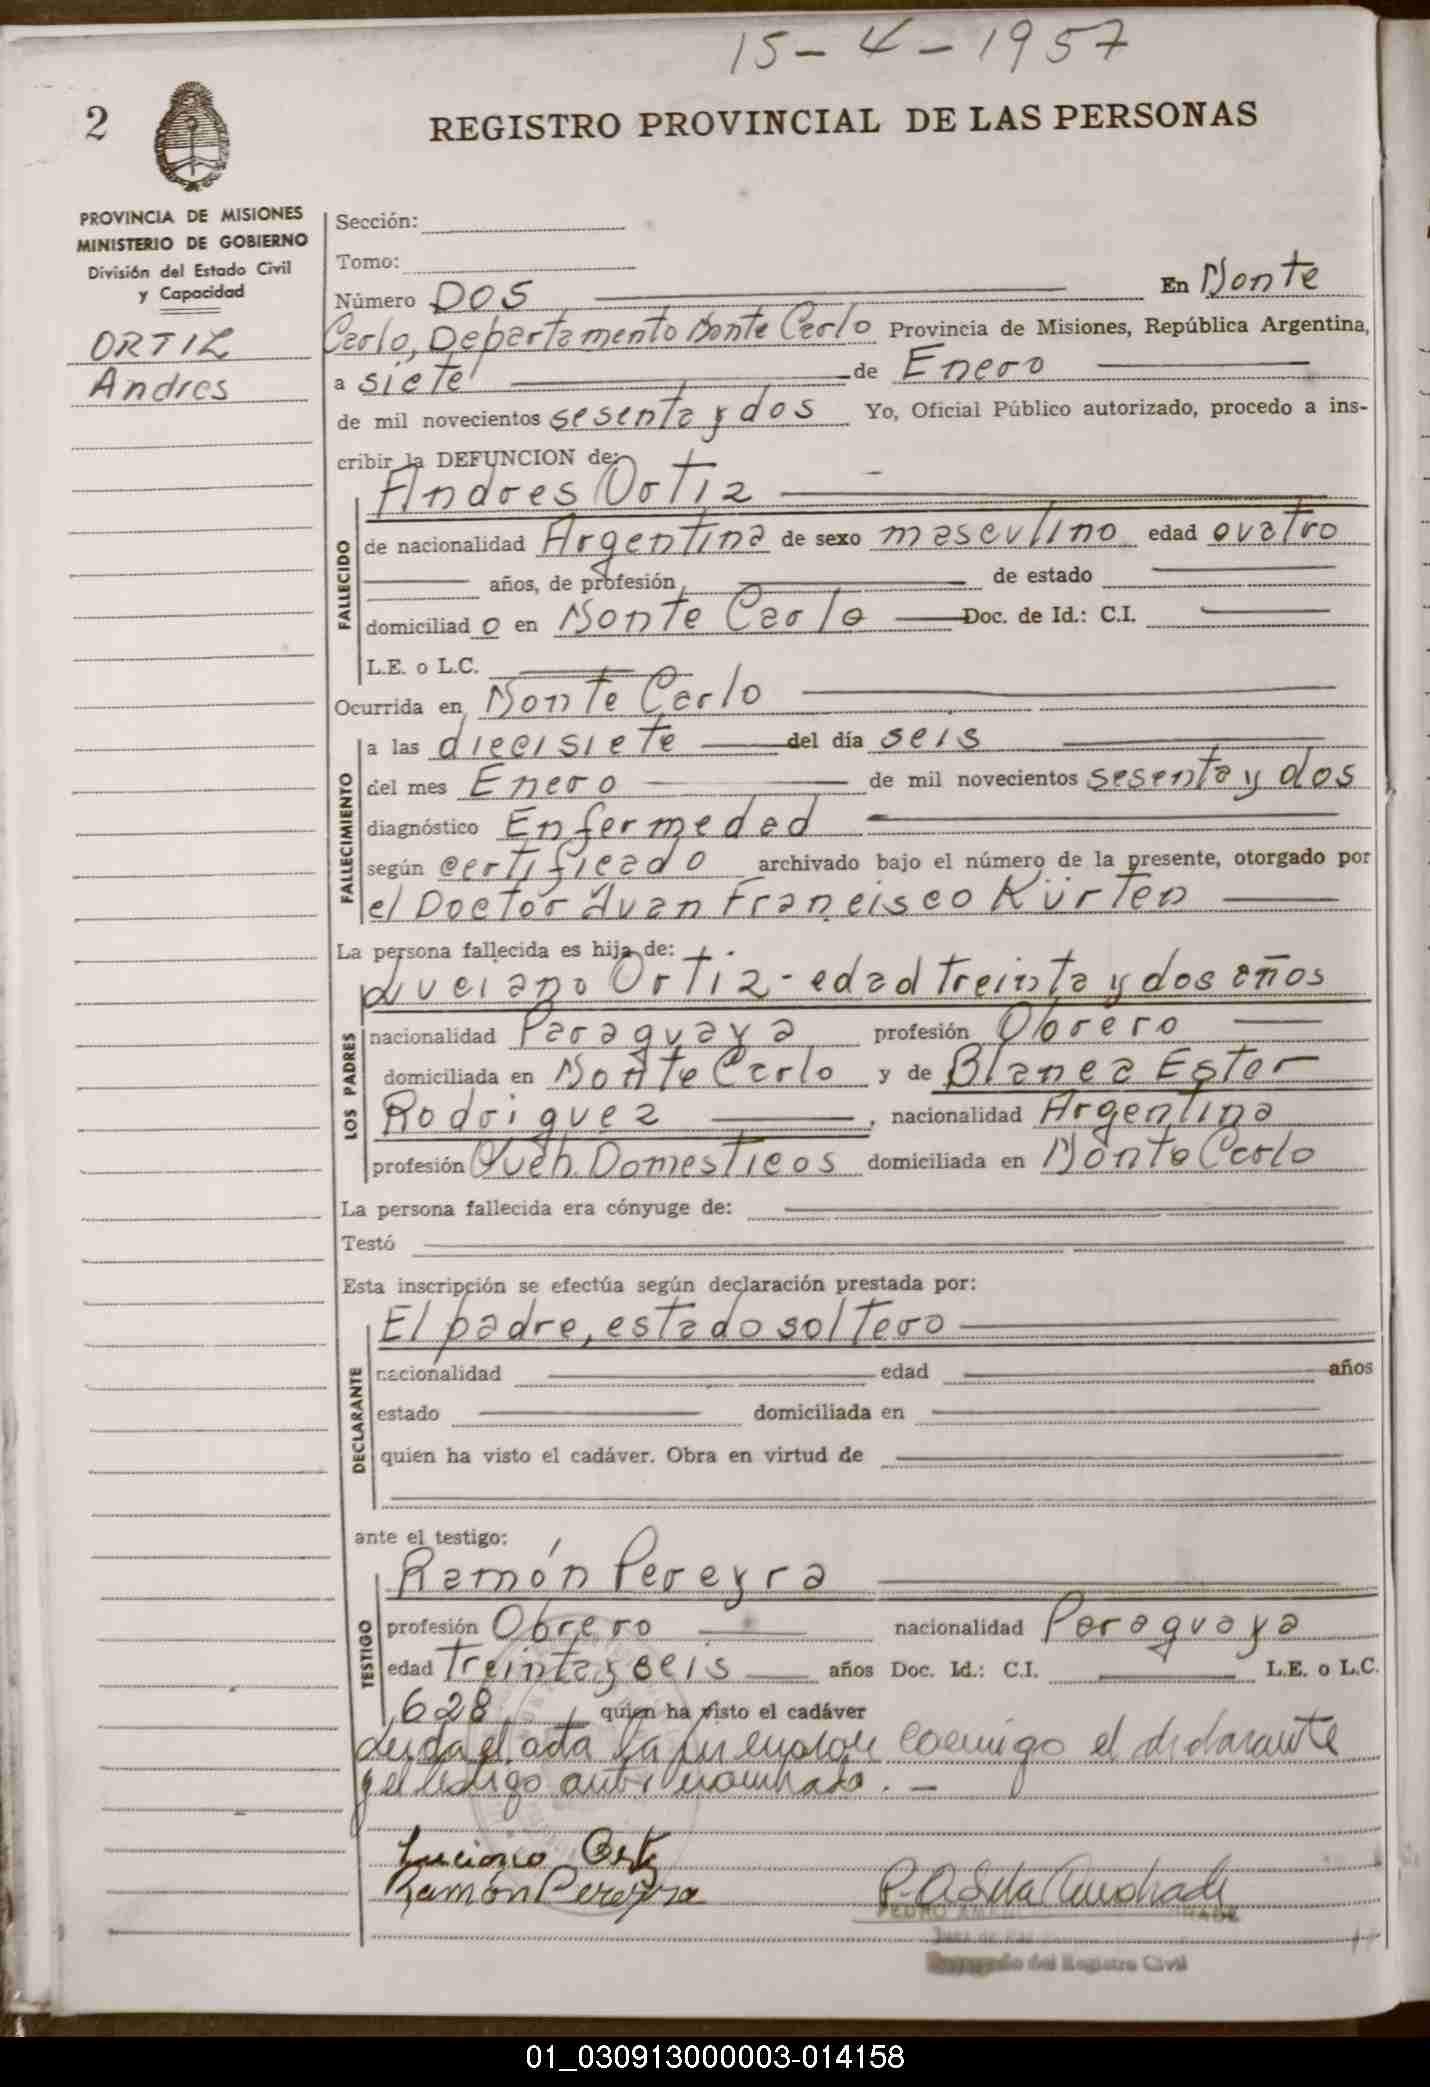 15-4-1957
2
REGISTRO PROVINCIAL DE LAS PERSONAS
PROVINCIA DE MISIONES
MINISTERIO DE GOBIERNO
División del Estado Civil
y Capacidad
ORTIZ
Andres
Sección:
Tomo:
Número DOS En Monte
Carlo, Departamento Monte Carlo Provincia de Misiones, República Argentina,
a siete de Enero
de mil novecientos sesenta y dos Yo, Oficial Público autorizado, procedo a ins-
cribir la DEFUNCION de:
Andres Ortiz
FALLECIDO
de nacionalidad Argentina de sexo masculino edad cuatro
años, de profesión de estado
domiciliado en Monte Carlo Doc. de Id.: C.I.
L.E. o L.C.
Ocurrida en Monte Carlo
FALLECIMIENTO
a las diecisiete del día seis
del mes Enero de mil novecientos sesenta y dos
diagnóstico Enfermedad
según certificado archivado bajo el número de la presente, otorgado por
el Doctor Juan Francisco Kürten
La persona fallecida es hija de:
Luciano Ortiz - edad treinta y dos años
LOS PADRES
nacionalidad Paraguaya profesión Obrero
domiciliada en Monte Carlo y de Blanca Ester
Rodriguez, nacionalidad Argentina
profesión Queh. Domesticos domiciliada en Monte Carlo
La persona fallecida era cónyuge de:
Testó
Esta inscripción se efectúa según declaración prestada por:
El padre, estado soltero
DECLARANTE
nacionalidad edad años
estado domiciliada en
quien ha visto el cadáver. Obra en virtud de
ante el testigo:
Ramón Pereyra
TESTIGO
profesión Obrero nacionalidad Paraguaya
edad treinta y seis años Doc. Id.: C.I. L.E. o L.C.
628 quien ha visto el cadáver
Leida el acta la firman conmigo el declarante
y el testigo antes nombrado. -
Luciano Ortiz
Ramón Pereyra
P. A Silva Andrade
PEDRO
del Registro Civil
01_030913000003-014158